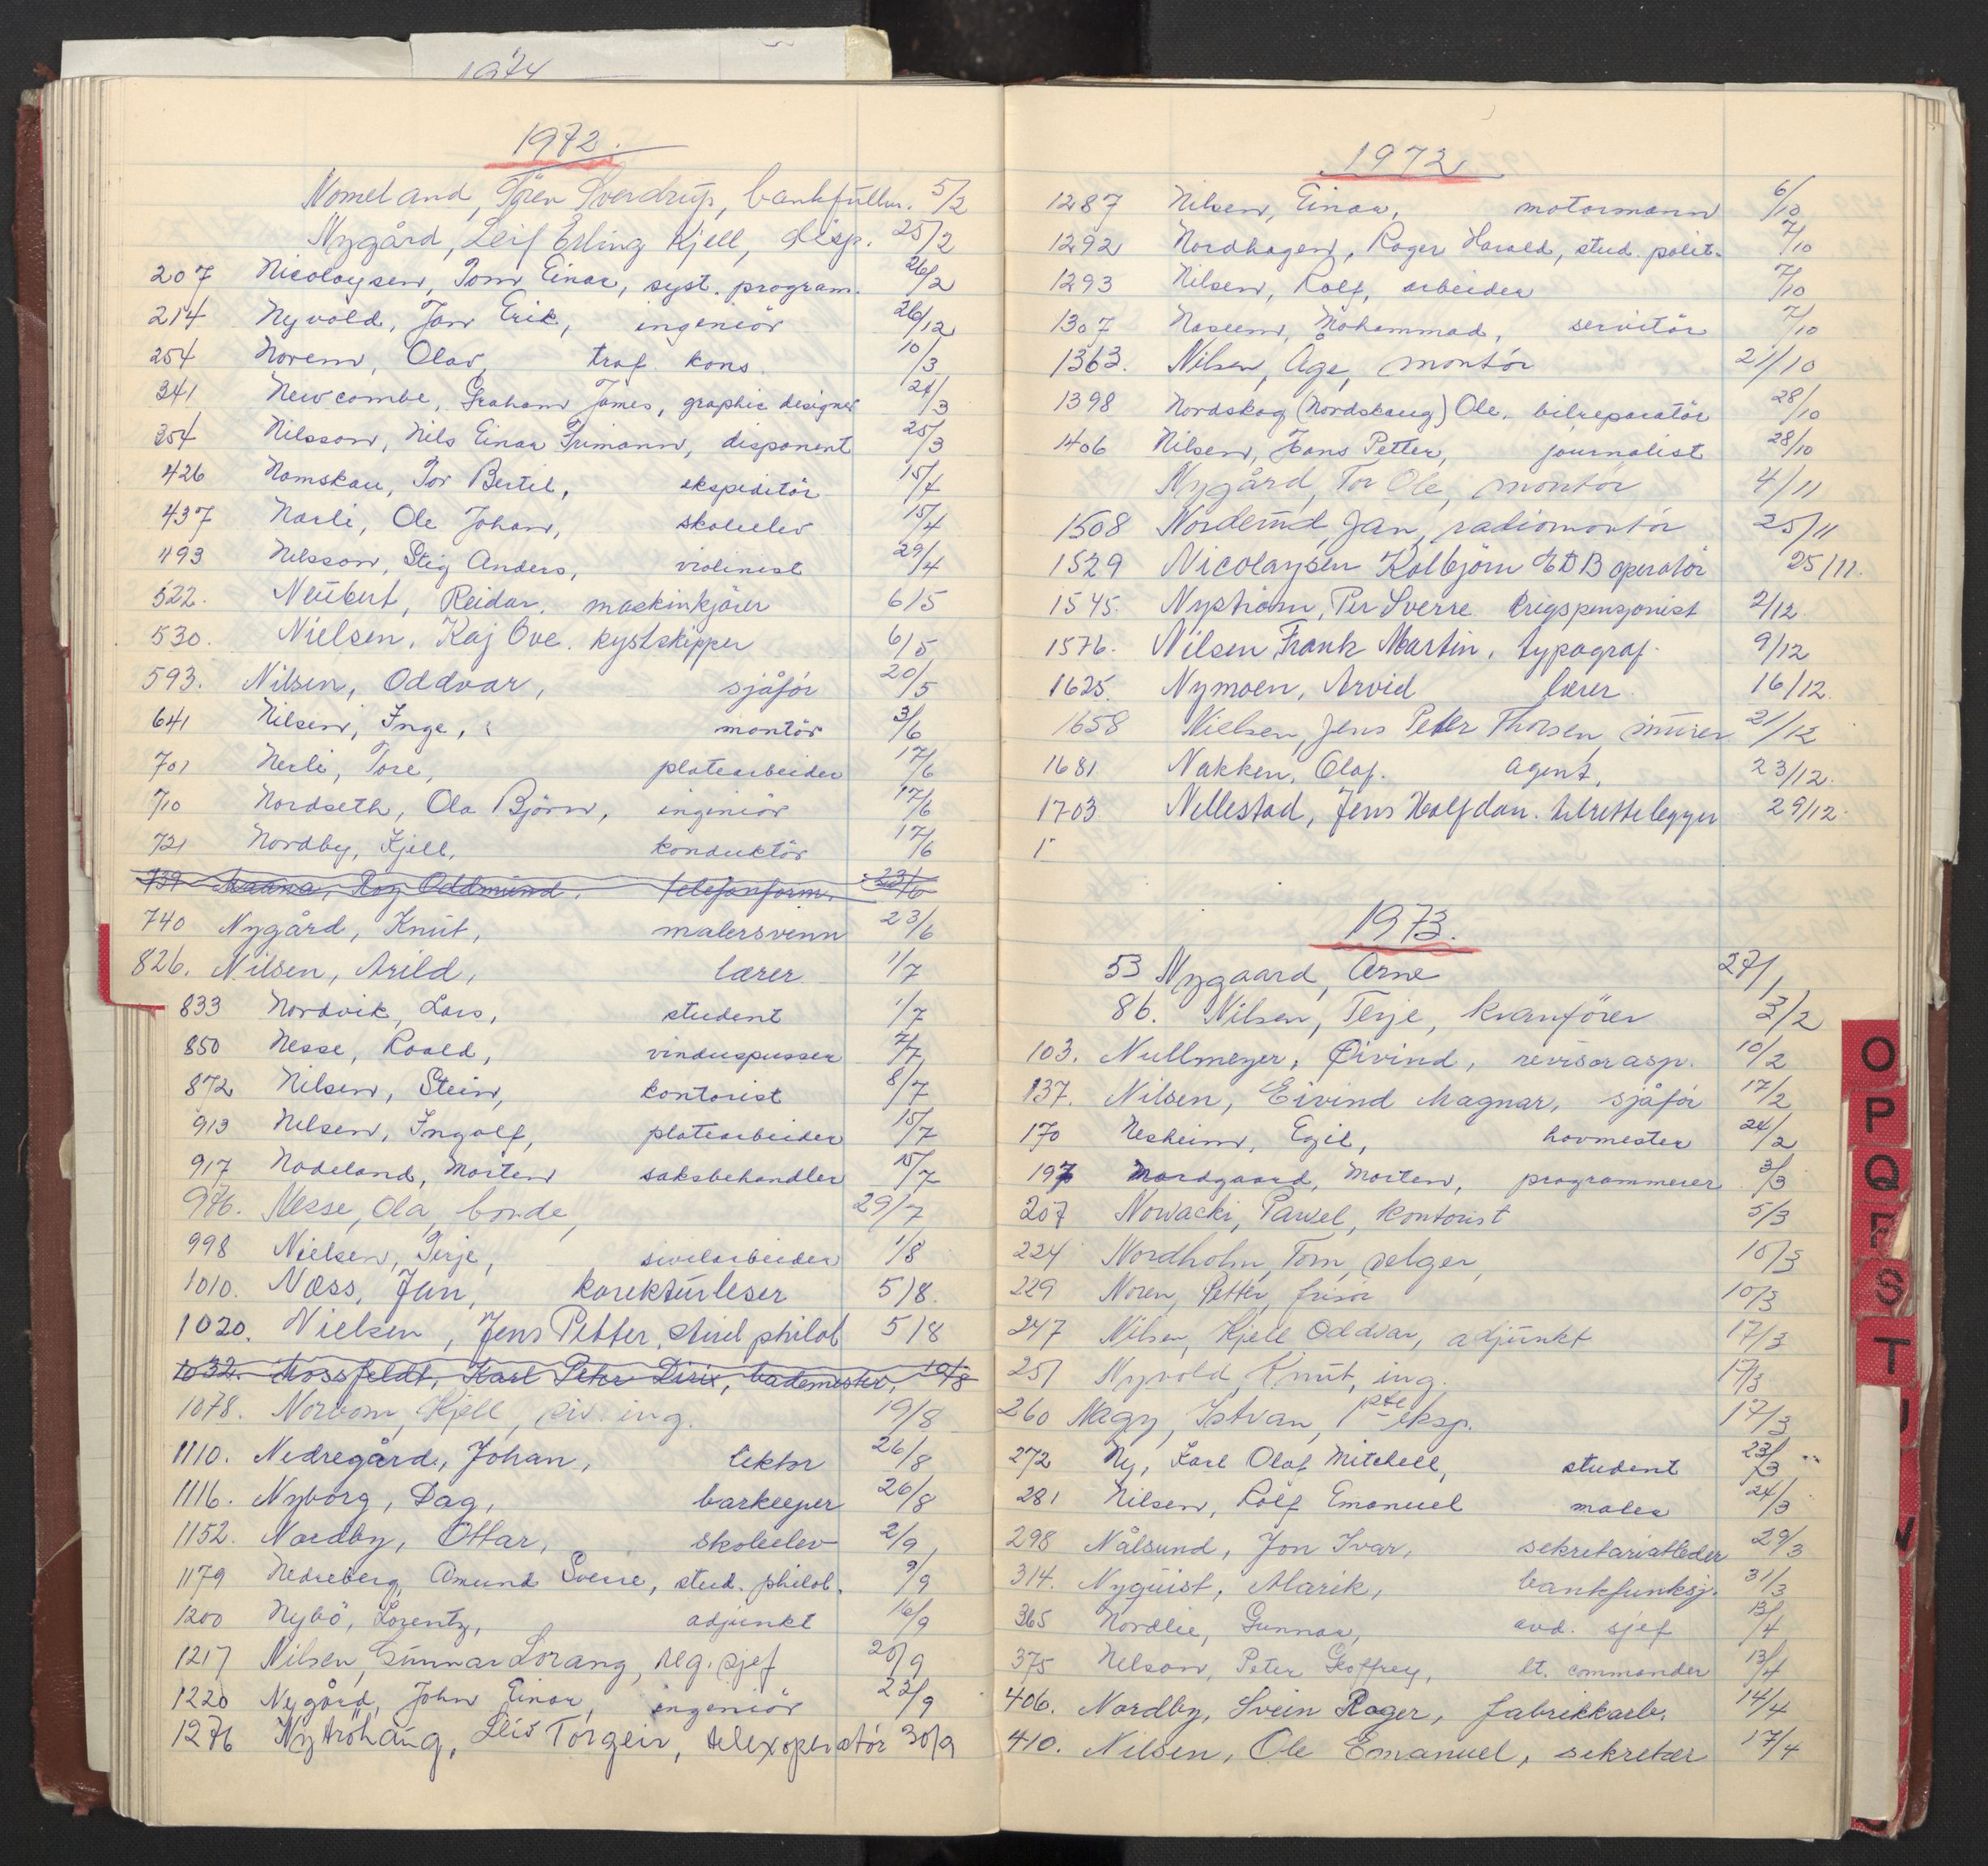 1974
1972.
Nomeland, Tören Sverdrup, bankfullm. 5/2
Nygård, Leif Erling Kjell, disp. 25/2
207 Nicolaysen, Tom Einar, syst. program. 26/2
214 Nyvold, Jan Erik, ingeniör 26/12
254 Norem, Olav, traf. kons. 10/3
341 Newcombe, Graham James, graphic designer 24/3
354 Nilsson, Nils Einar Frimann, disponent 25/3
426 Namskau, Tor Bertil, ekspeditör 15/4
437 Narli, Ole Johan, skoleelev 15/4
493 Nilsson, Stig Anders, violinist 29/4
522. Neübert, Reidar, maskinkjörer 6/5
530. Nielsen, Kaj Ove. kystskipper 6/5
593. Nilsen, Oddvar, sjåför 20/5
641 Nilsen, Inge, montör 3/6
701 Nerli, Tore, platearbeider 17/6
710 Nordseth, Ola Björn, ingeniör 17/6
721 Nordby, Kjell, konduktör 17/6
739 Roy Oddmund. telefonform. 23/6
740 Nygård, Knut, malersvenn 23/6
826. Nilsen, Arild, lærer 1/7
833 Nordvik, Lars, student 1/7
850 Nesse, Roald, vinduspusser 7/7
872 Nilsen, Stein, kontorist 8/7
913 Nilsen, Ingolf, platearbeider 15/7
917 Nodeland, Morten saksbehandler 15/7
976. Nesse, Ola, bonde, 29/7
998 Nielsen, Terje, sivilarbeider 1/8
1010. Næss, Jan, korektürleser 5/8.
1020. Nielsen, Jens Petter, stud philol 5/8
1032. Mossfeldt, Karl Peter Dirix, bademester, 10/8
1078. Norbom, Kjell, siv. ing. 19/8
1110. Nedregård, Johan, lektor 26/8
1116. Nyborg, Dag, barkeeper 26/8
1152. Nordby, Ottar, skoleelev 2/9
1179 Nedreberg, Amund Sverre, stud. philol. 9/9
1200 Nybö, Lorentz, adjunkt 16/9
1217 Nilsen, Gunnar Lorang, reg. sjef 20/9
1220 Nygård, John Einar, ingeniör 23/9
1276 Nytröhaug, Leif Torgeir, telexoperatör 30/9
1972
1287 Nilsen, Einar, motormann 6/10
1292 Nordhagen, Roger Harald, stud. polit. 7/10
1293 Nilsen, Rolf, arbeider 7/10
1307 Naseem, Mohammad, servitör 7/10
1363. Nilsen, Åge, montör 21/10
1398 Nordskog (Nordskaug) Ole, bilreparatör 28/10
1406 Nilsen, Hans Petter, journalist 28/10
Nygård, Tor Ole, montör 4/11
1508 Norderud, Jan, radiomontör 25/11
1529 Nicolaysen Kolbjörn EDB operatör 25/11.
1545. Nyström, Per Sverre krigspensjonist 2/12
1576. Nilsen Frank Martin, typograf. 9/12
1625. Nymoen, Arvid lærer. 16/12.
1658 Nielsen, Jens Peter Thorsen, murer 21/12
1681 Nakken, Olaf. agent, 23/12.
1703 Nellestad, Jens Halfdan. tilrettelegger 29/12.
1
1973.
53 Nygaard, Arne 27/1
86. Nilsen, Terje, kranförer 3/2
103. Nullmeyer, Øivind, revisorasp. 10/2
137. Nilsen, Eivind Magnar, sjåför 17/2
170 Nesheim, Egil, hovmester 24/2
197 Nordgaard, Morten, programmerer 3/3
207 Nowacki, Pawel, kontorist 5/3
224 Nordholm, Tom, selger, 10/3
229 Noren, Petter, frisör 10/3
247 Nilsen, Kjell Oddvar, adjünkt 17/3
251 Nyvold, Knut, ing. 17/3
260 Nagy, Istvan, 1ste eksp. 17/3
272 Ny, Karl Olaf Mitchell, student 23/3
281 Nilsen, Rolf Emanuel maler 24/3
298 Nålsund, Jon Ivar, sekretariatleder 29/3
314. Nyquist, Alarik, bankfunksj. 31/3
365 Nordlie, Gunnar, avd. sjef 13/4
375 Nelson, Peter Geoffrey, lt. commander 13/4
406. Nordby, Svein Roger, fabrikkarb. 14/4
410. Nilsen, Ole Emanuel, sekretær 17/4
O
P
Q
R
S
T
U
V